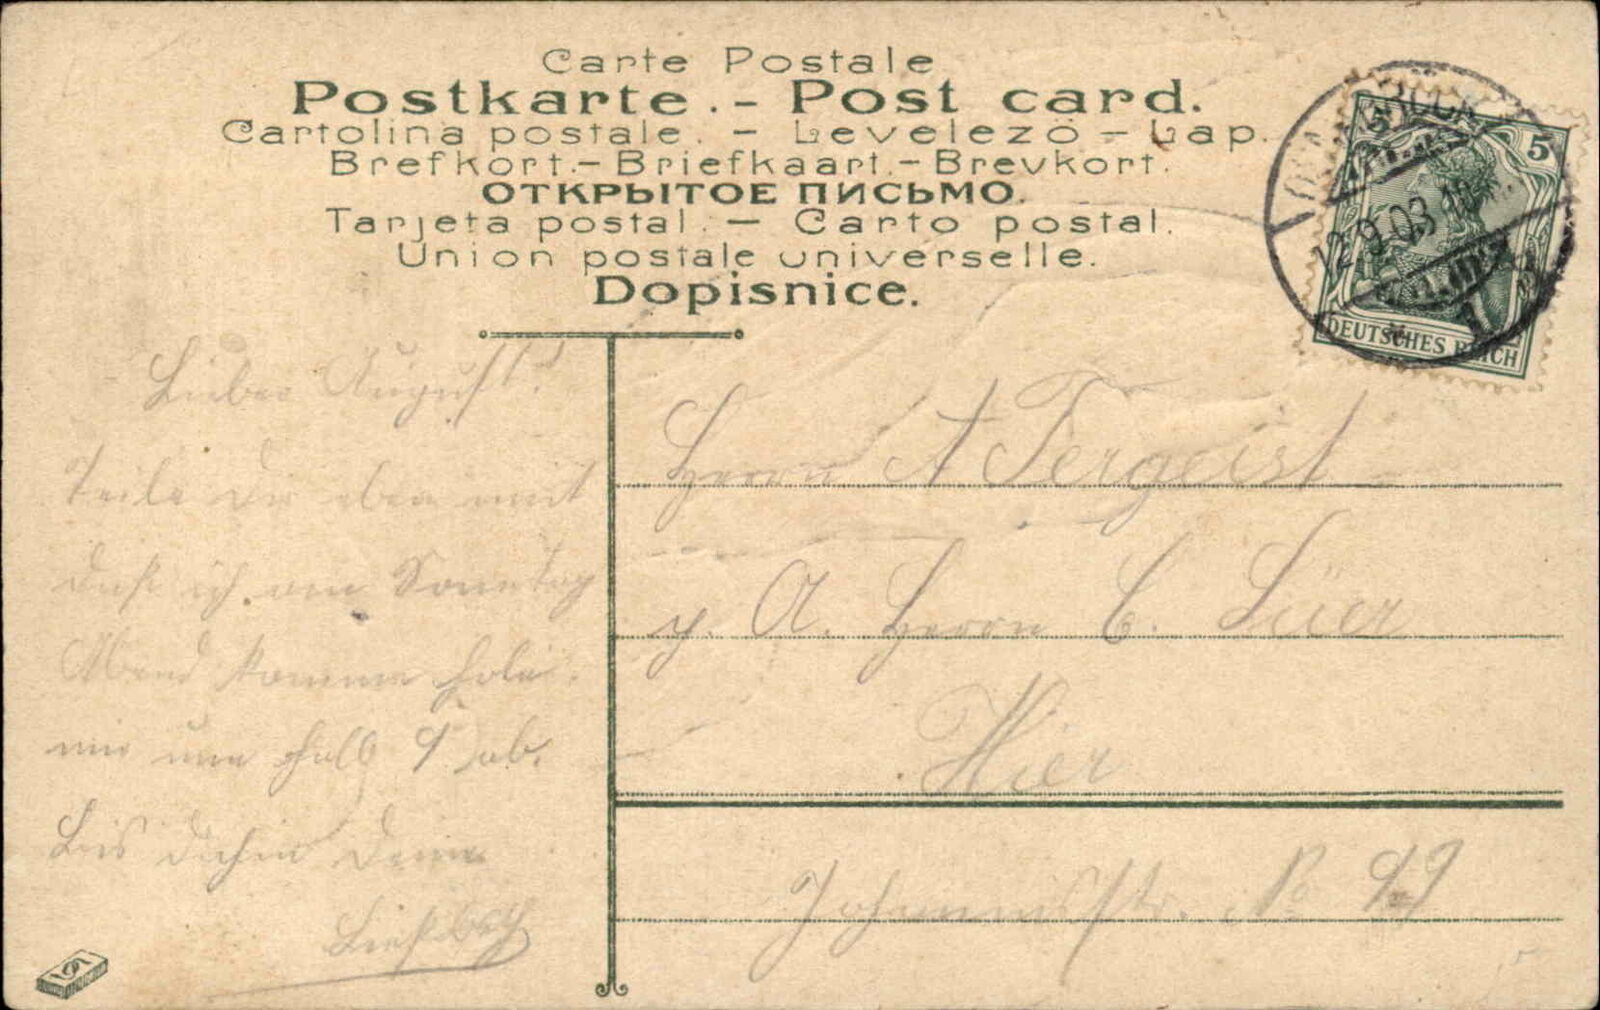 Carte Postale
Postkarte. - Post card.
Cartolina postale. - Levelező - Lap.
Brefkort. - Briefkaart. - Brevkort.
ОТКРЫТОЕ ПИСЬМО.
Tarjeta postal. - Carto postal.
Union postale universelle.
Dopisnice.
5 5
12.9.03
DEUTSCHES REICH
Lieber August!
Teile Dir eben mit
daß ich am Sonntag
Abend komme hole
mir um halb 9 ab.
Bis dahin Deine
Herrn A Tergeist
p. A. Herrn C. Lüer
Hier
Johannisstr. No 49